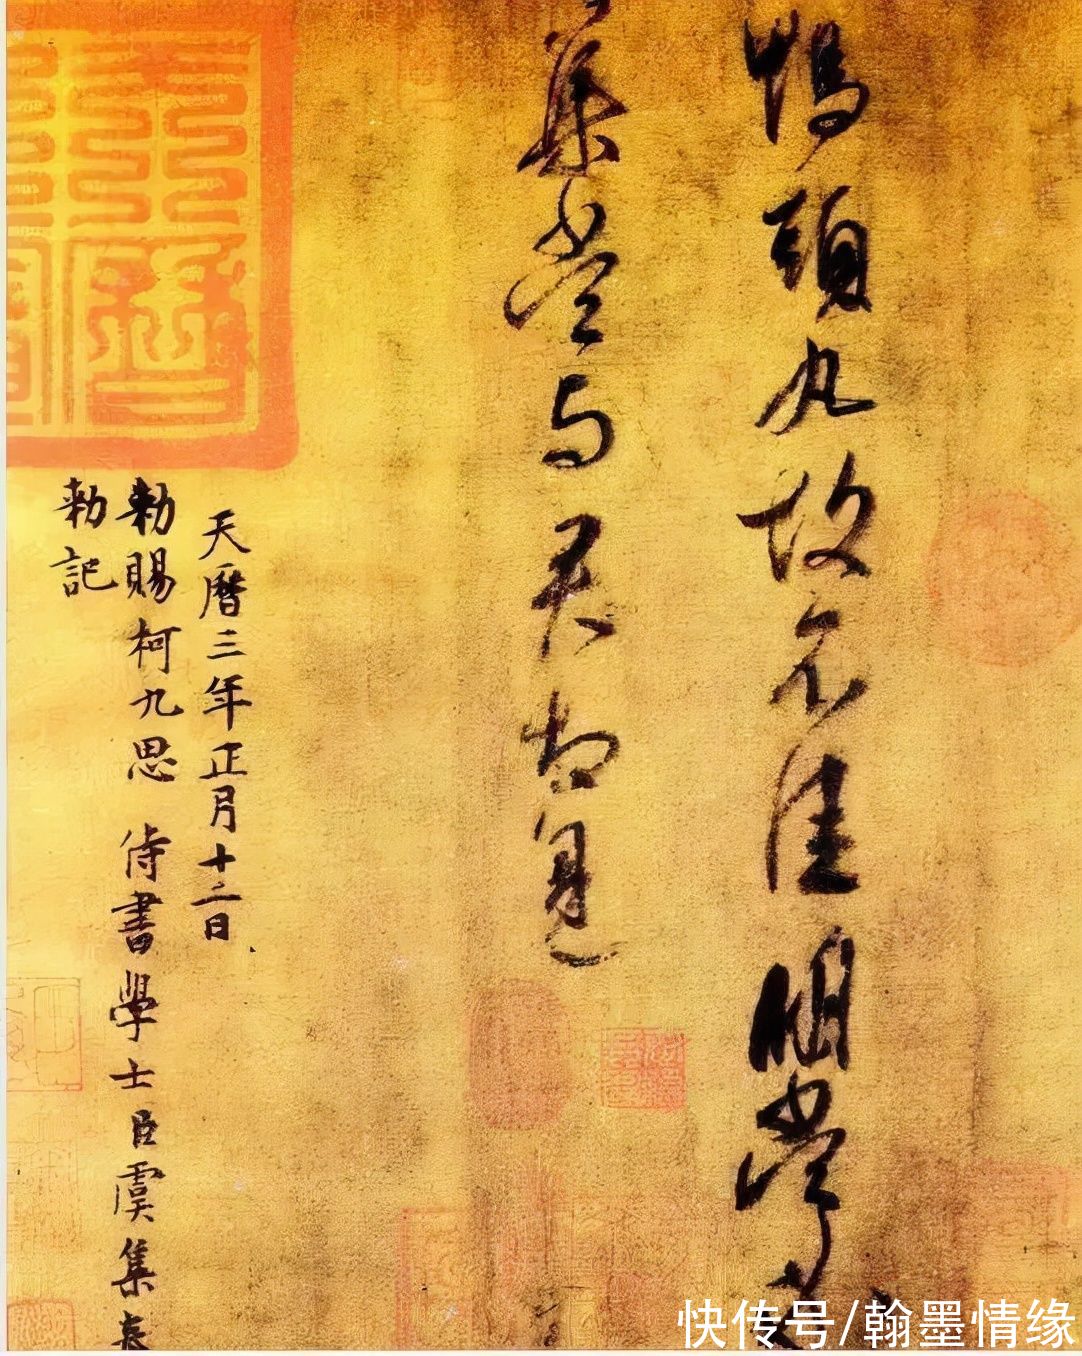 鴨頭丸故不佳明當必
集當与君相見
天曆三年正月十二日
勅賜柯九思侍書學士臣虞集奉
勅記
天曆
快传号/翰墨情缘